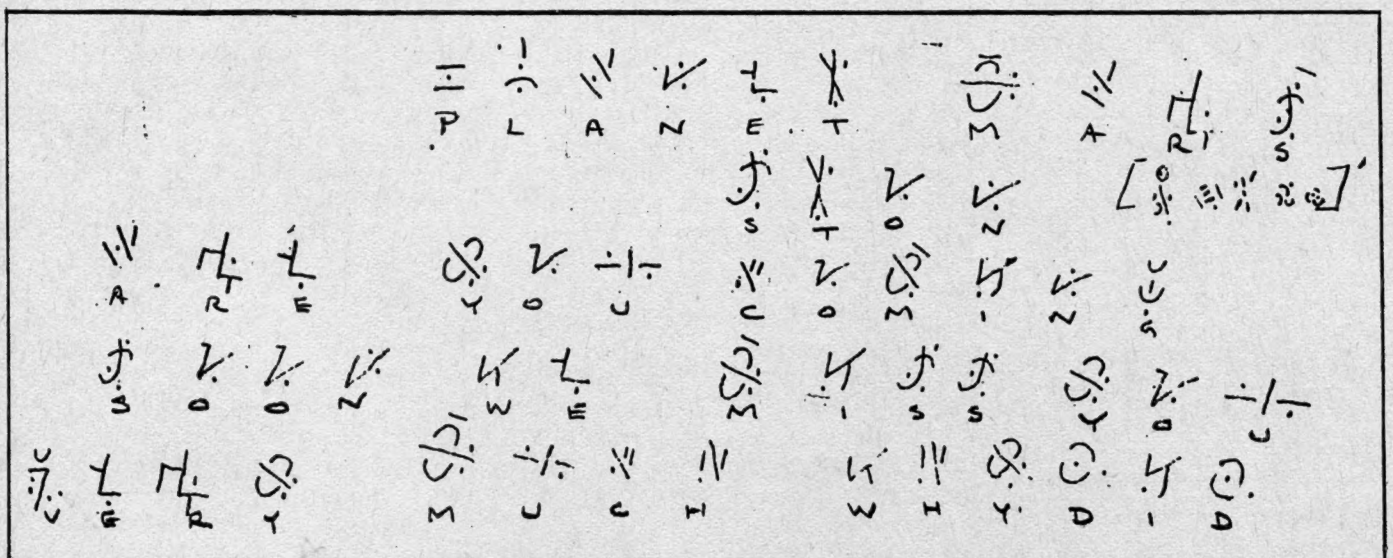 PLANET MARS
STON
ARE YOU COMING
SOON WE MISS YOU
VERY MUCH WHY DID